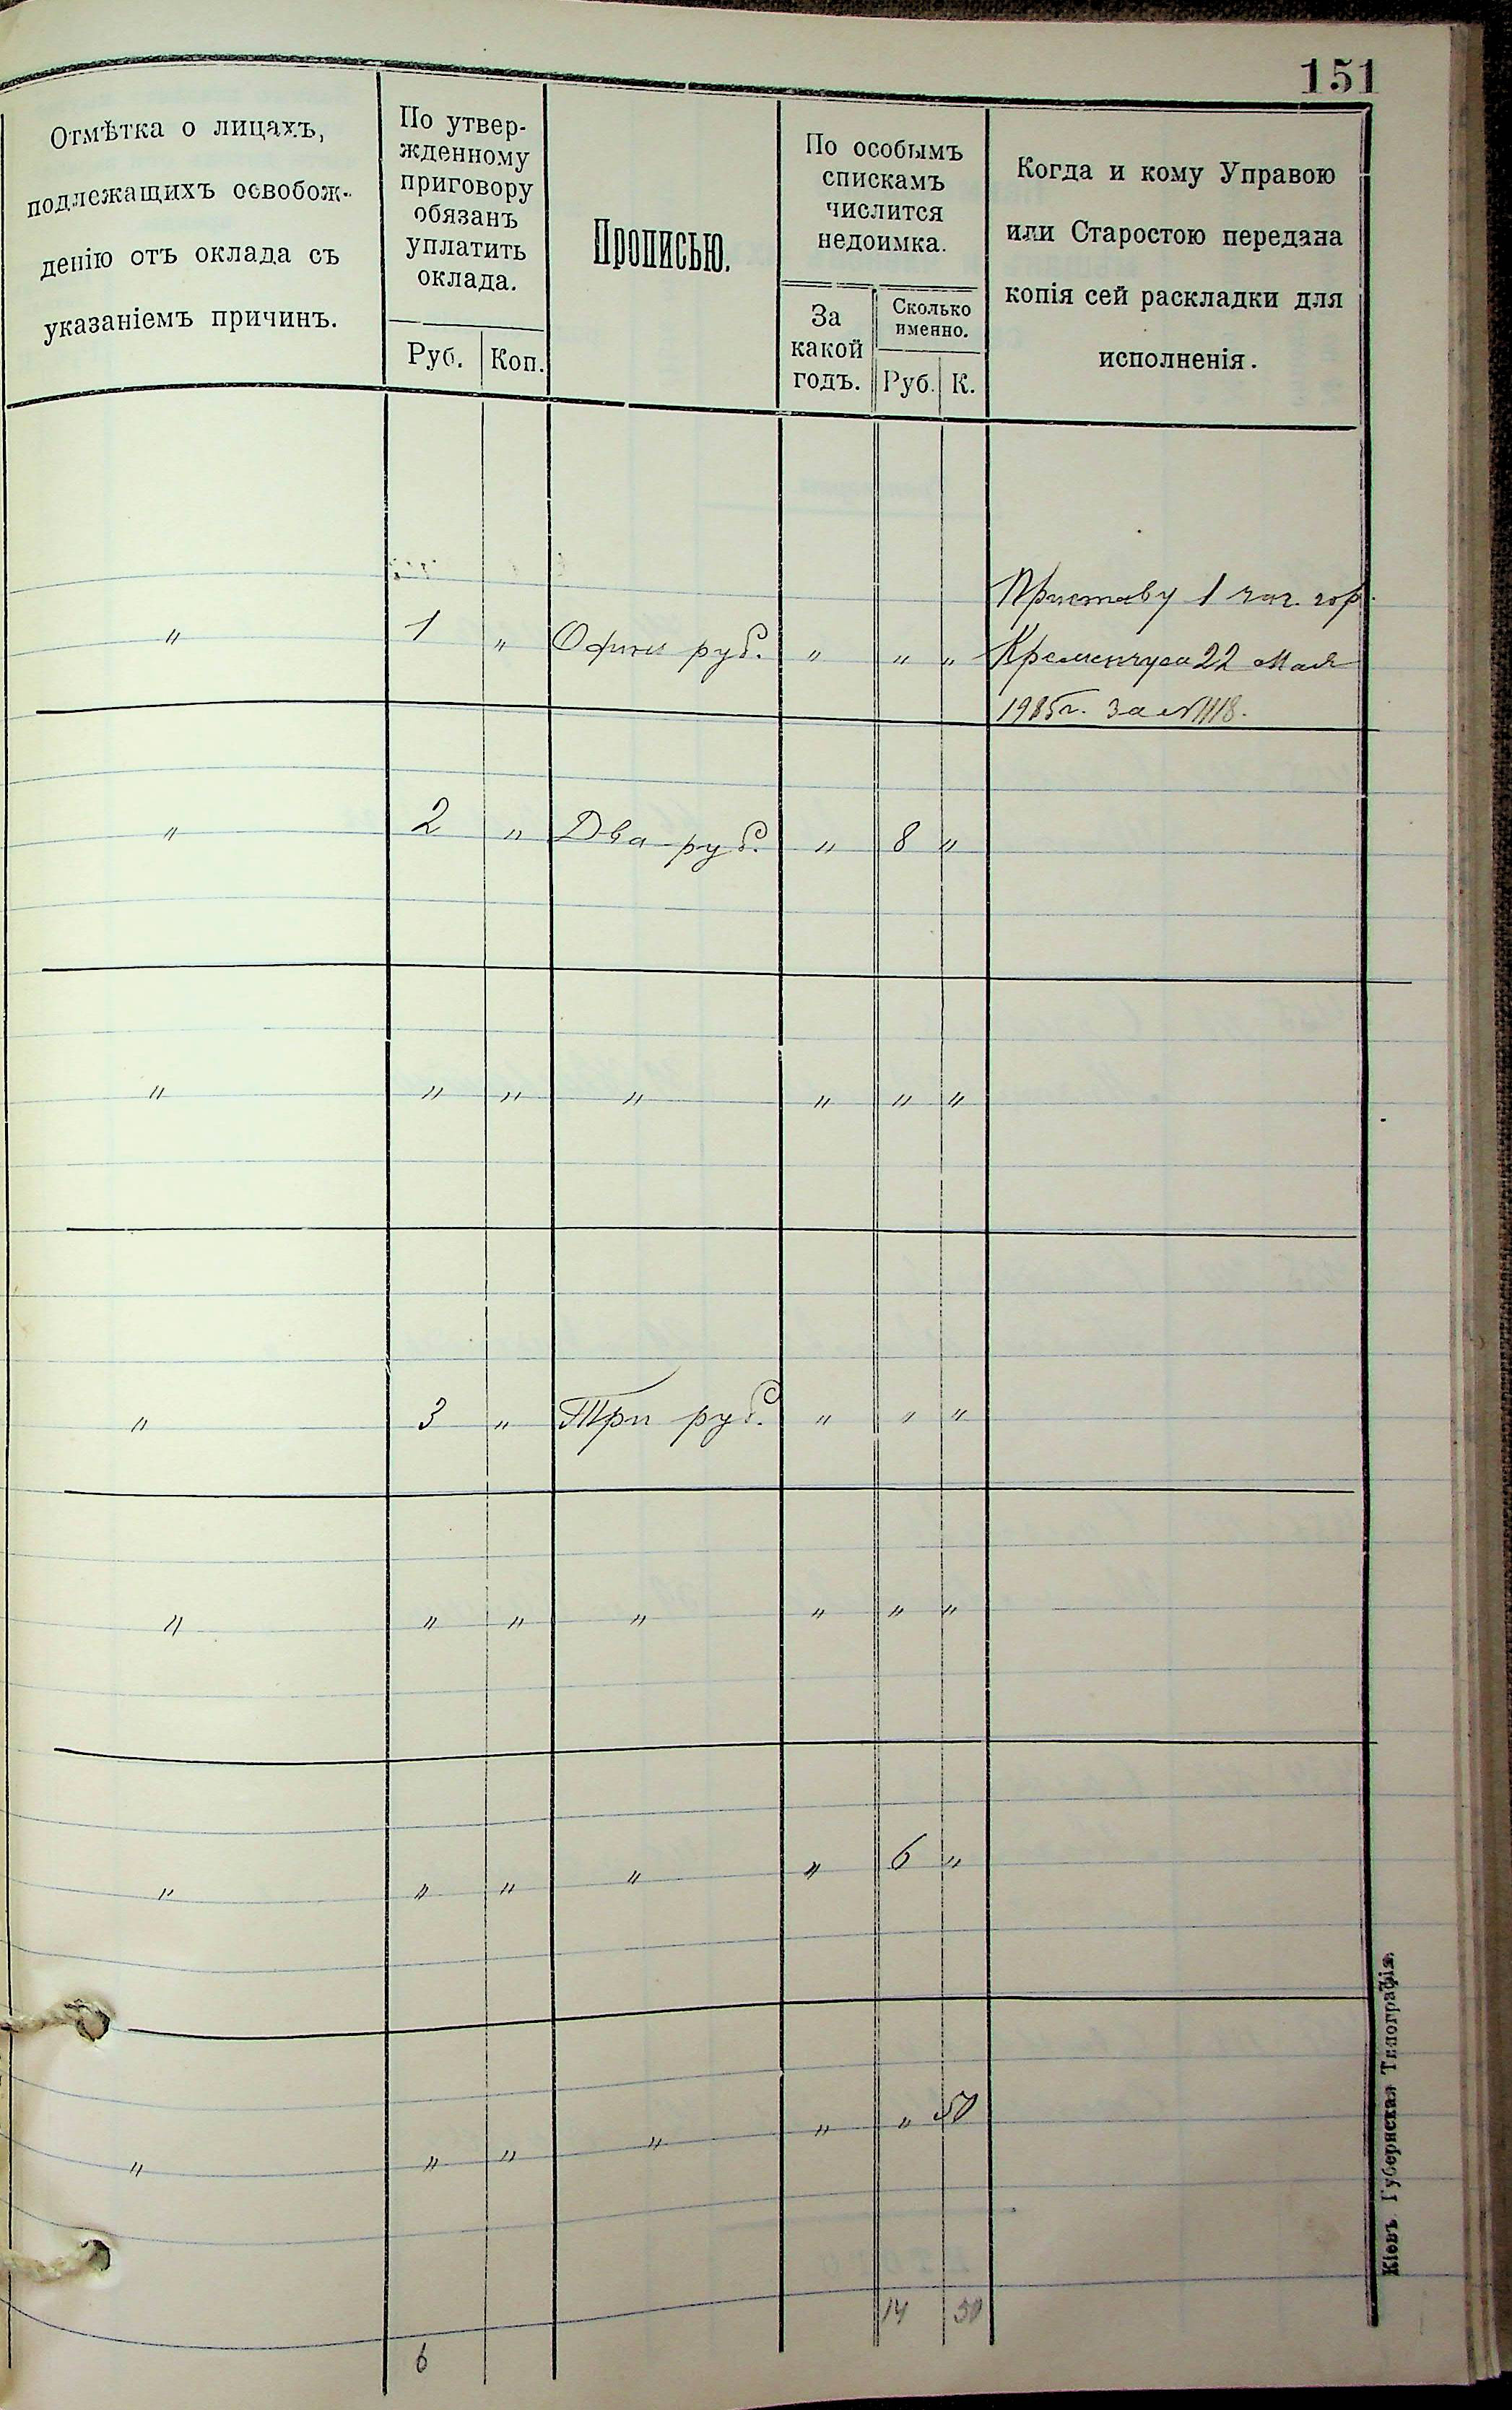 151
Отмѣтка о лицахъ,
подлежащихъ освобож-
денію отъ оклада съ
указаніемъ причинъ.
По утвер-
жденному
приговору
обязанъ
уплатить
оклада.
Руб. Коп.
Прописью.
По особымъ
спискамъ
числится
недоимка.
За
какой
годъ.
Сколько
именно.
Руб. К.
Когда и кому Управою
или Старостою передана
копія сей раскладки для
исполненія.
Приставу 1 гор.
" 1 " Одинъ руб. " " " Кременчуга 22 Мая
за №1118.
" 2 " Два руб. " 8 "
" " " " " " "
" 3 " Три руб. " " "
" " " " " " "
" " " " " 6 "
" " " " " " 50
14 50
6
Кіевъ. Губернская Типографія.